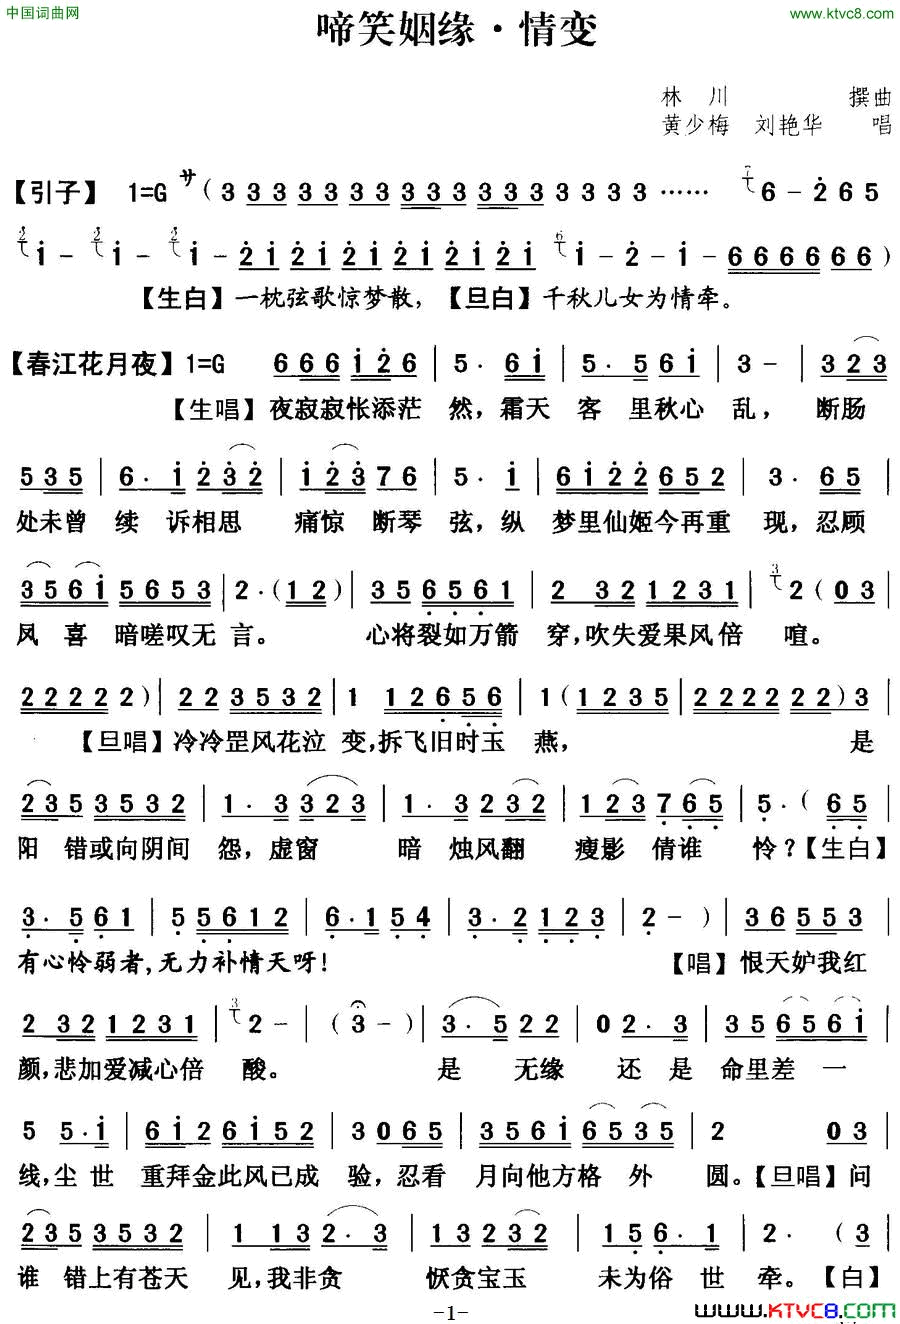 中国词曲网
www.ktvc8.com
啼笑姻缘·情变
林川 撰曲
黄少梅 刘艳华 唱
【引子】 1=G サ ( 3 3 3 3 3 3 3 3 3 3 3 3 3 3 3 3 3 …… 6 - 2 6 5
i - i - i - 2 i 2 i 2 i 2 i 2 i 2 i i - 2 - i - 6 6 6 6 6 6 )
【生白】一枕弦歌惊梦散,【旦白】千秋儿女为情牵。
【春江花月夜】1=G 6 6 6 i 2 6 | 5 · 6 i | 5 · 5 6 i | 3 - | 3 2 3
【生唱】夜寂寂怅添茫 然，霜天 客 里秋心 乱，断肠
5 3 5 | 6 · i 2 3 2 | i 2 3 7 6 | 5 · i | 6 i 2 2 6 5 5 2 | 3 · 6 5 |
处未曾 续 诉相思 痛惊 断琴 弦，纵 梦里仙姬今再重 现，忍顾
3 5 6 i 5 6 5 3 | 2 · ( 1 2 ) | 3 5 6 5 6 1 | 2 3 2 1 2 3 1 | 2 ( 0 3 |
凤 喜 暗嗟叹无 言。 心将裂如万箭 穿，吹失爱果风倍 喧。
2 2 2 2 2 ) | 2 2 3 5 3 2 | 1 1 2 6 5 6 | 1 ( 1 2 3 5 | 2 2 2 2 2 2 ) 3 |
【旦唱】冷冷罡风花泣 变，拆飞旧时玉 燕， 是
2 3 5 3 5 3 2 | 1 · 3 3 2 3 | 1 · 3 2 3 2 | 1 2 3 7 6 5 | 5 · ( 6 5 |
阳 错或向阴间 怨，虚窗 暗 烛风翻 瘦影 倩谁 怜？【生白】
3 · 5 6 1 | 5 5 6 1 2 | 6 · 1 5 4 | 3 · 2 1 2 3 | 2 - ) | 3 6 5 5 3
有心怜弱者，无力补情天呀！ 【唱】恨天妒我红
2 3 2 1 2 3 1 | 2 - | ( 3 - ) | 3 · 5 2 2 | 0 2 · 3 | 3 5 6 5 6 i |
颜，悲加爱减心倍 酸。 是 无缘 还 是 命里差 一
5 5 · i | 6 i 2 6 i 5 2 | 3 0 6 5 | 3 5 6 i 6 5 3 5 | 2 0 3 |
线，尘 世 重拜金此风已成 验，忍看 月向他方格 外 圆。【旦唱】问
2 3 5 3 5 3 2 | 1 1 3 2 · 3 | 1 3 2 3 2 | 1 5 6 · 1 | 2 · ( 3 |
谁 错上有苍天 见，我非贪 恹贪宝玉 未为俗 世 牵。【白】
-1-
www.KTVC8.com